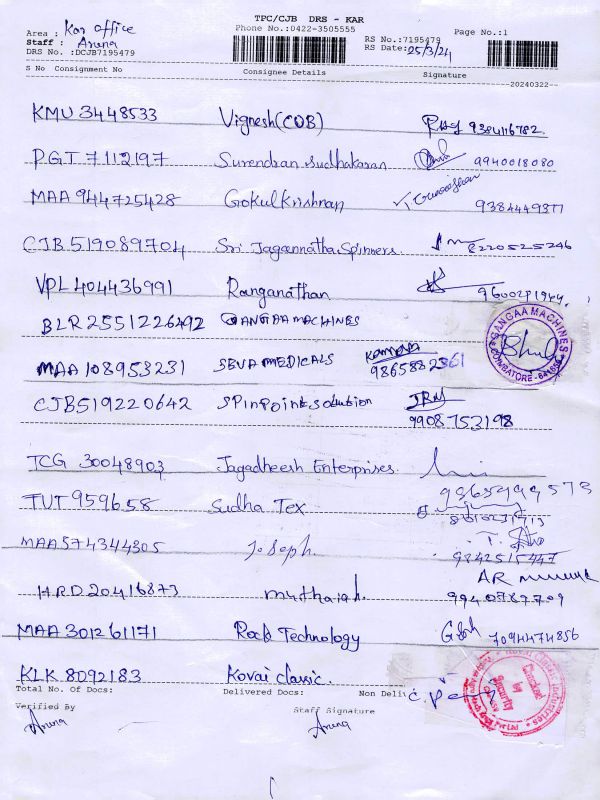 TPC/CJB DRS - KAR
Area : Kar office Phone No.:0422-3505555 RS No.:7195479 Page No.:1
Staff : Aruna RS Date:25/3/24
DRS No. :DCJB7195479
S No Consignment No Consignee Details Signature
20240322--
KMU 3448533 Vignesh(COB) 9384116782
PGT 7112197 Surendran Sudhakaran 9940018080
MAA 944725428 Gokul Krishnan 9384449377
CJB 519089704 Sri Jagannatha Spinners. 8220525246
VPL 404436991 Ranganathan 9600291944.
BLR 2551226492 GANGAA MACHINES
GANGAA MACHINES COIMBATORE
MAA 108953231 SEVA MEDICALS 9865832361
CJB519220642 SPinPoint Solution 9908753198
TCG 30048903 Jagadheesh Enterprises.
TUT 959658 Sudha Tex
MAA574344305 Joseph. 9842515447
HRD20416873 muthaiah. AR
MAA 301261171 Rock Technology 7094474856
KLK 8092183 Kovai classic.
Total No. Of Docs: Delivered Docs: Non Deli
Verified By Staff Signature
Aruna Aruna
Checked by Security